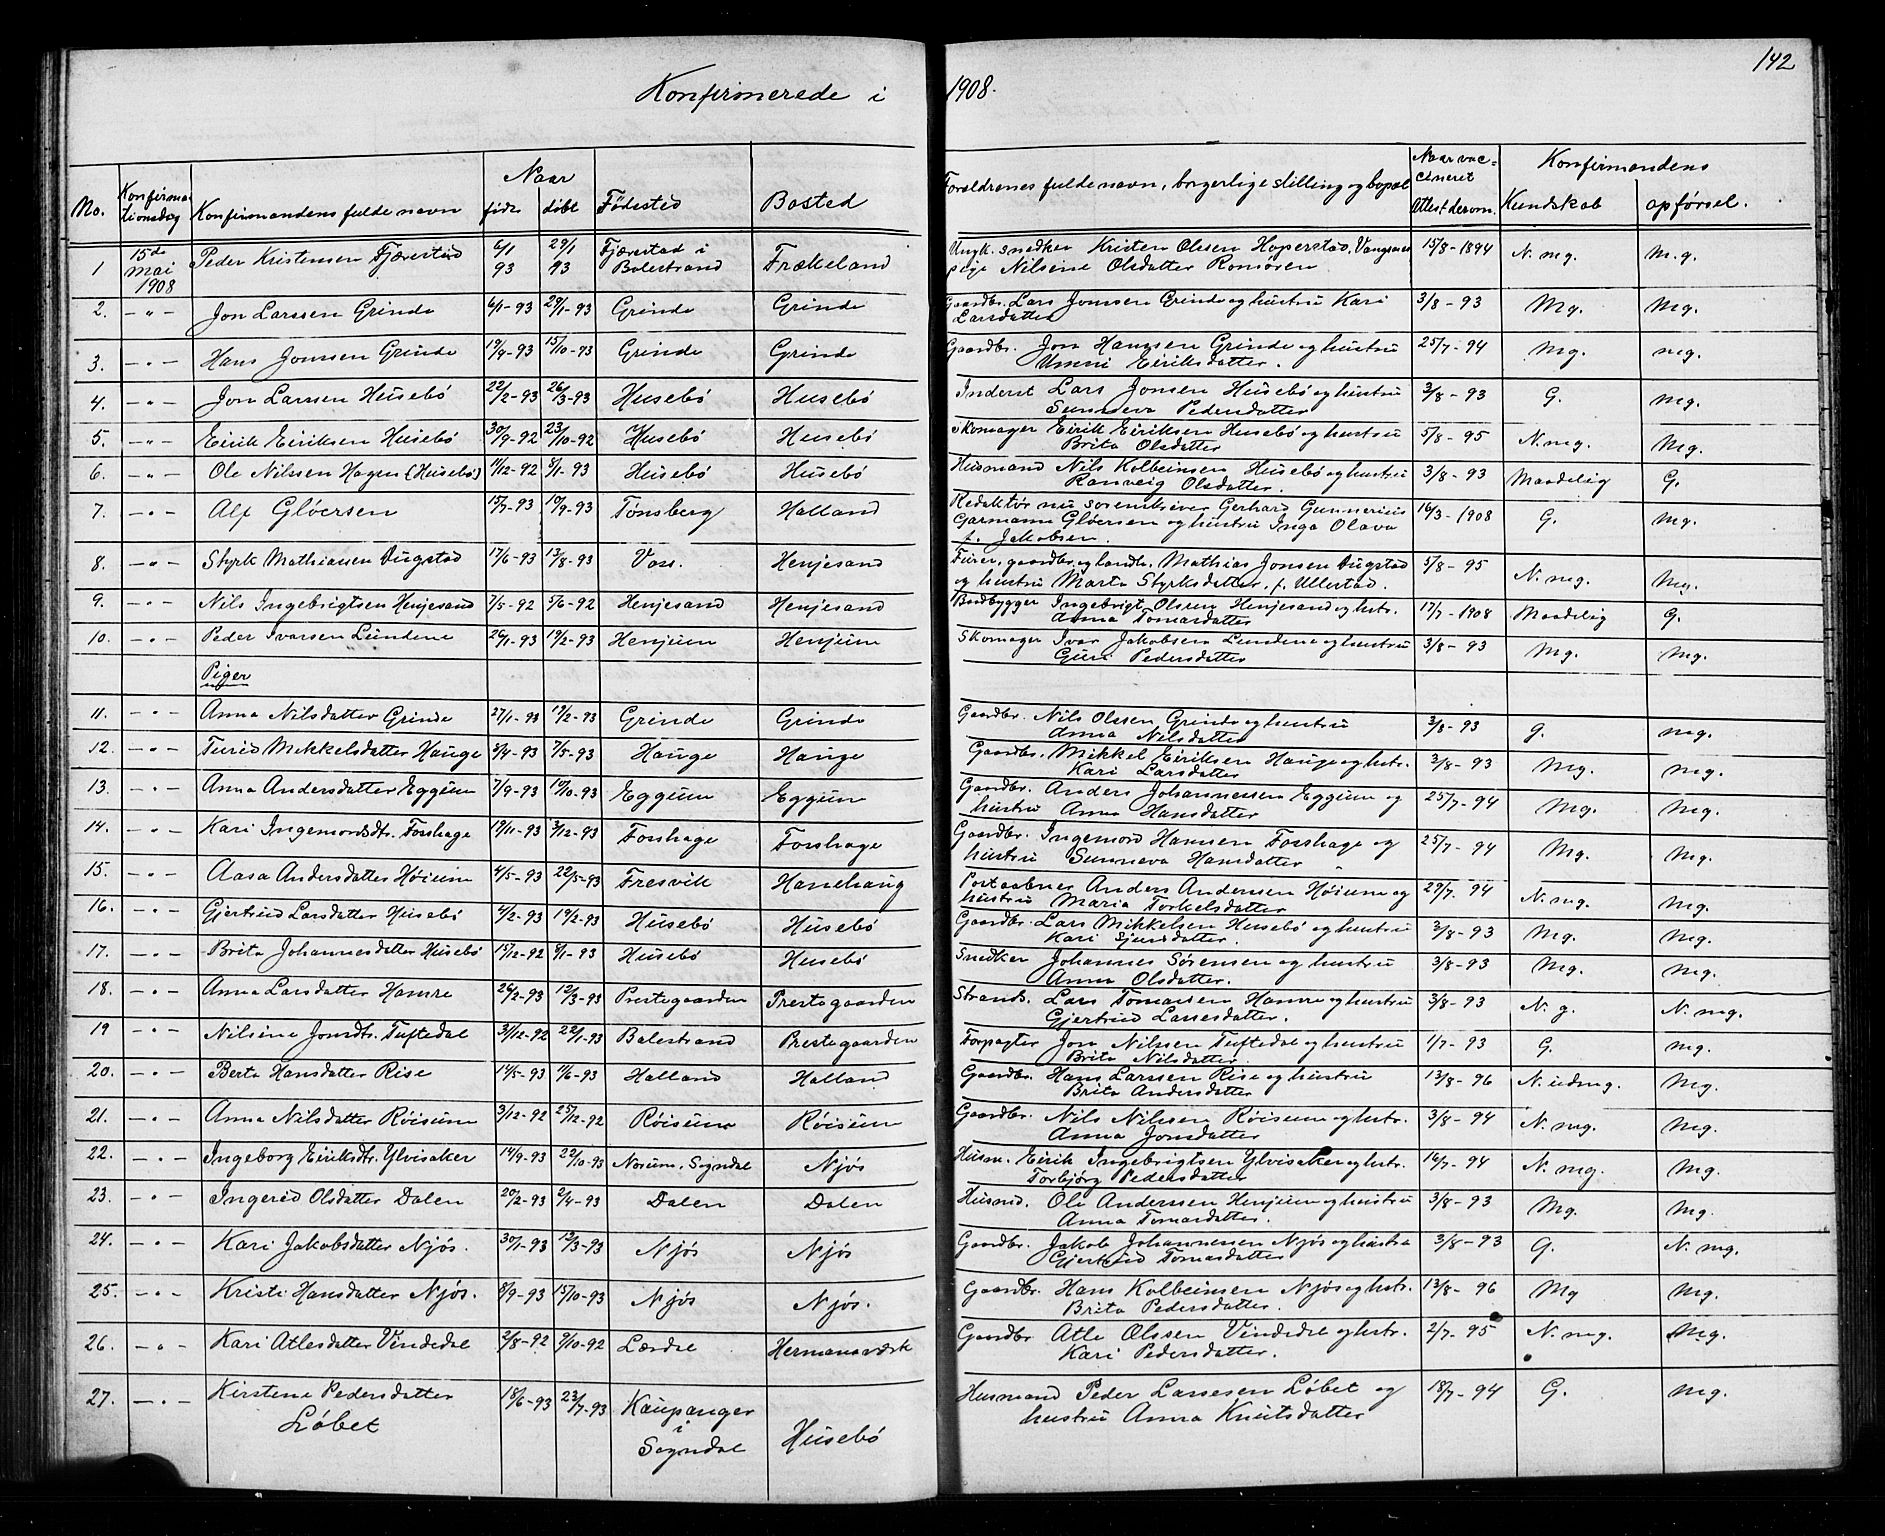 142
Konfirmerede i 1908.
No. Konfirmationsdag Konfirmandens fulde navn Naar født døbt Fødested Bosted Forældrenes fulde navn, borgerlige stilling og bopæl Naar vaccineret Attest derom. Konfirmandens Kundskab opførsel.
1 15de Mai 1908 Peder Kristensen Fjærestad 6/1 93 29/1 93 Fjærestad i Balestrand Frækeland Ungk. snedker Kristen Olssen Hoperstad, Vangsnes pige Nilsine Olsdatter Romøren 15/8-1894 N. mg. m.g.
2. -"- Jon Larssen Grinde 6/1-93 29/1-93 Grinde Grinde Gaardbr. Lars Jonssen Grinde og hustru Kari Larsdatter 3/8-93 Mg. Mg.
3. -"- Hans Jonssen Grinde 19/9-93 15/10-93 Grinde Grinde Gaardbr. Jon Hanssen Grinde og hustru Unni Eiriksdatter. 25/7-94 Mg. mg.
4. -"- Jon Larssen Husebø 22/2-93 26/3-93 Husebø Husebø Inderst Lars Jonsen Husebø og hustru Sunneva Pedersdatter 3/8-93 G. mg.
5. -"- Eirik Eiriksen Husebø 30/9-92 23/10-92 Husebø Husebø Skomager Eirik Eiriksen Husebø og hustru Brita Olsdatter 5/8-95 N. mg. Mg.
6. -"- Ole Nilssen Hagen (Husebø) 11/12-92 8/1-93 Husebø Husebø Husmand Nils Kolbeinsen Husebø og hustru Ranveig Olsdatter. 3/8-93 Maadelig G.
7. -"- Alf Gløersen 15/7-93 10/9-93 Tønsberg Halland Redaktør nu sorenskriver Gerhard Gunnerius Garmann Gløersen og hustru Inga Olava f. Jakobsen. 16/3-1908 G. mg.
8. -"- Styrk Mathiassen Dugstad 17/6-93 13/8-93 Voss. Henjesand Furer, gaardbr. og landh. Mathias Jonsen Dugstad og hustru Marta Styrksdatter, f. Ullestad. 5/8-95 N. mg. Mg.
9. -"- Nils Ingebrigtsen Henjesand 7/5-92 5/6-92 Henjesand Henjesand Baadbygger Ingebrigt Olssen Henjesand og hstr. Anna Tomasdatter 17/7-1908 Maadelig G.
10. -"- Peder Ivarsen Lundene 26/1-93 19/2-93 Henjum Henjum Skomager Ivar Jakobsen Lundene og hustru Guri Pedersdatter 3/8-93 Mg. Mg.
Piger
11. -"- Anna Nilsdatter Grinde 27/1-93 19/2-93 Grinde Grinde Gaardbr. Nils Olssen Grinde og hustru Anna Nilsdatter 3/8-93 g. mg.
12. -"- Turid Mikkelsdatter Hauge 3/4-93 7/5-93 Hauge Hauge Gaardbr. Mikkel Eiriksen Hauge og hstr. Kari Larsdatter 3/8-93 Mg. Mg.
13. -"- Anna Andersdatter Eggum 7/9-93 10/10-93 Eggum Eggum Gaardbr. Anders Johannessen Eggum og hustru Anna Hansdatter 25/7-94 Mg. Mg.
14. -"- Kari Ingemondsdtr. Fosshage 19/11-93 3/12-93 Fosshage Fosshage Gaardbr. Ingemond Hanssen Fosshage og hustru Sunneva Hansdatter 25/7-94 Mg. Mg.
15. -"- Aasa Andersdatter Høium 4/5-93 22/5-93 Fresvik Hanehaug Postaabner Anders Andersen Høium og hustru Maria Torkelsdatter 29/7-94 N. mg. Mg.
16. -"- Gjertrud Larsdatter Husebø 4/2-93 19/2-93 Husebø Husebø Gaardbr. Lars Mikkelsen Husebø og hustru Kari Sjursdatter. 3/8-93 Mg. Mg.
17. -"- Brita Johannesdatter Husebø 15/12-92 8/1-93 Husebø Husebø Snedker Johannes Sørensen og hustru Anna Olsdatter. 3/8-93 Mg. Mg.
18. -"- Anna Larsdatter Hamre 26/2-93 12/3-93 Prestegaarden Prestegaarden Strands. Lars Tomassen Hamre og hustru Gjertrud Lassesdatter. 3/8-93 N. g. N. mg.
19 -"- Nilsine Jonsdtr. Tuftedal 31/12-92 22/1-93 Balestrand Prestegaarden Forpagter Jon Nilssen Tuftedal og hustru Brita Nilsdatter. 1/7-93 G. Mg.
20. -"- Berta Hansdatter Rise 14/5-93 11/6-93 Halland Halland Gaardbr. Hans Larssen Rise og hustru Brita Andersdatter 13/8-96 N. udmg. Mg.
21. -"- Anna Nilsdatter Røisum 3/12-92 25/12-92 Røisum Røisum Gaardbr. Nils Nilssen Røisum og hstr. Anna Jonsdatter 3/8-94 N. mg. Mg.
22. -"- Ingeborg Eiriksdtr. Ylvisaker 14/9-93 22/10-93 Norum, Sogndal Njøs Husm. Eirik Ingebrigtsen Ylvisaker og hstr. Torbjørg Pedersdatter 16/7-94 N. mg. Mg.
23. -"- Ingerid Olsdatter Dalen 20/2-93 2/4-93 Dalen Dalen Husmd. Ole Anderssen Henjum og hustru Anna Tomasdatter. 3/8-93 Mg. Mg.
24. -"- Kari Jakobsdatter Njøs. 30/1-93 12/3-93 Njøs Njøs Gaardbr. Jakob Johannessen Njøs og hustru Gjertrud Tomasdatter 3/8-93 G. N. mg.
25. -"- Kristi Hansdatter Njøs. 8/9-93 15/10-93 Njøs Njøs. Gaardbr. Hans Kolbeinsen Njøs og hstr. Brita Pedersdatter. 13/8-96 Mg Mg.
26. -"- Kari Atlesdatter Vindedal 2/8-92 9/10-92 Lærdal Hermansværk Gaardbr Atle Olssen Vindedal og hstr. Kari Pedersdatter. 2/7-95 N. mg. Mg.
27. -"- Kirstene Pedersdatter Løbet 18/6-93 23/7-93 Kaupanger i Sogndal Husebø Husmand Peder Lassesen Løbet og hustru Anna Knutsdatter 18/7-94 G. Mg.